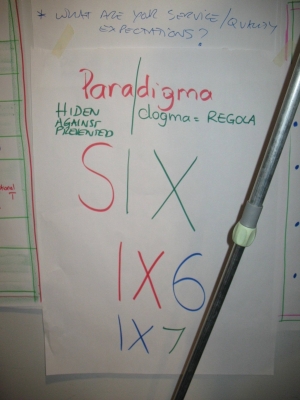 * WHAT ARE YOR SERVICE/QUALITY
EXPECTATIONS?
Para/digma
HIDEN
AGAINST
PREVENTED
dogma = REGOLA
SIX
IX6
IX7